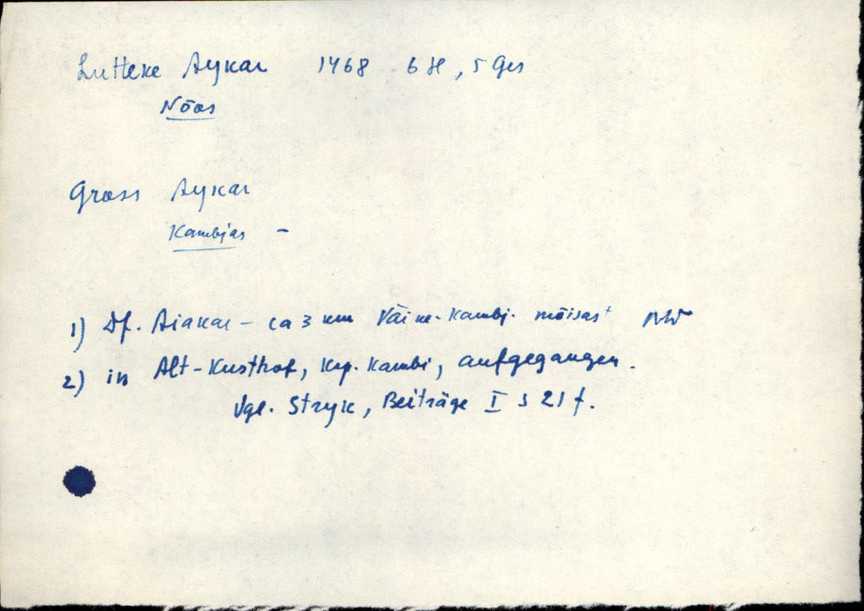 Lutteke Aykar 1468 6 H, 5 Ges
Nõos
Gross Aykar
Kambjas -
1) Df. Aiakar - ca 3 km Väike-Kambj. mõisast NW
2) in Alt-Kusthof, Krp. Kambi, aufgegangen.
Vgl. Stryk, Beiträge I S 21 f.